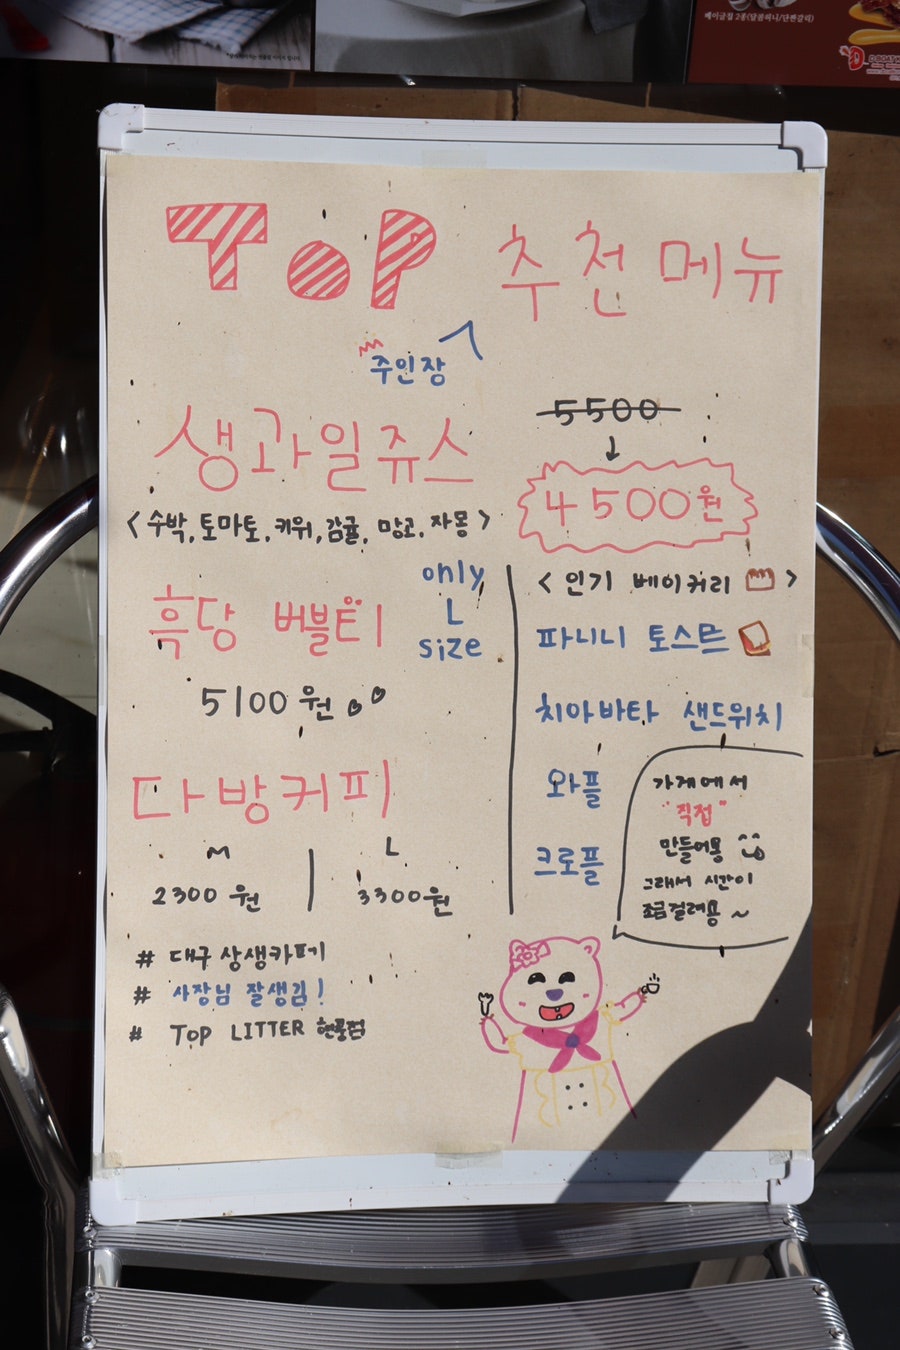 베이글칩 2종(달콤허니/단짠갈릭)
TOP 추천 메뉴
주인장
생과일쥬스
5500
↓
4500원
<수박, 토마토, 키위, 감귤, 망고, 자몽>
흑당 버블티
only
L
size
5100원
다방커피
M
2300 원
L
3300원
<인기 베이커리>
파니니 토스트
치아바타 샌드위치
와플
크로플
가게에서
"직접"
만들어용
그래서 시간이
조금걸려용 ~
# 대구 상생카페
# 사장님 잘생김!
# TOP LITTER 현풍점